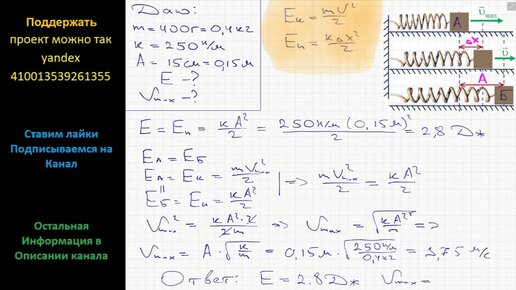 Поддержать
проект можно так
yandex
410013539261355
Ставим лайки
Подписываемся на
Канал
Остальная
Информация в
Описании канала
Дано:
m=400г=0,4кг
k=250 Н/м
A=15см=0,15м
E-?
Vmax-?
Eк = mV²/2
Eп = kΔx²/2
А
υmax
Δx
υ
A
Б
E = Eп = kA²/2 = 250Н/м (0,15м)²/2 = 2,8 Дж
EА = EБ
EА = Eк = mVmax²/2
EБ = Eп = kA²/2
|=> mVmax²/2 = kA²/2
Vmax² = kA²·2/2m => Vmax = √(kA²/m) =>
Vmax = A·√(k/m) = 0,15м·√(250Н/м/0,4кг) = 3,75 м/с
Ответ: E = 2,8Дж Vmax =